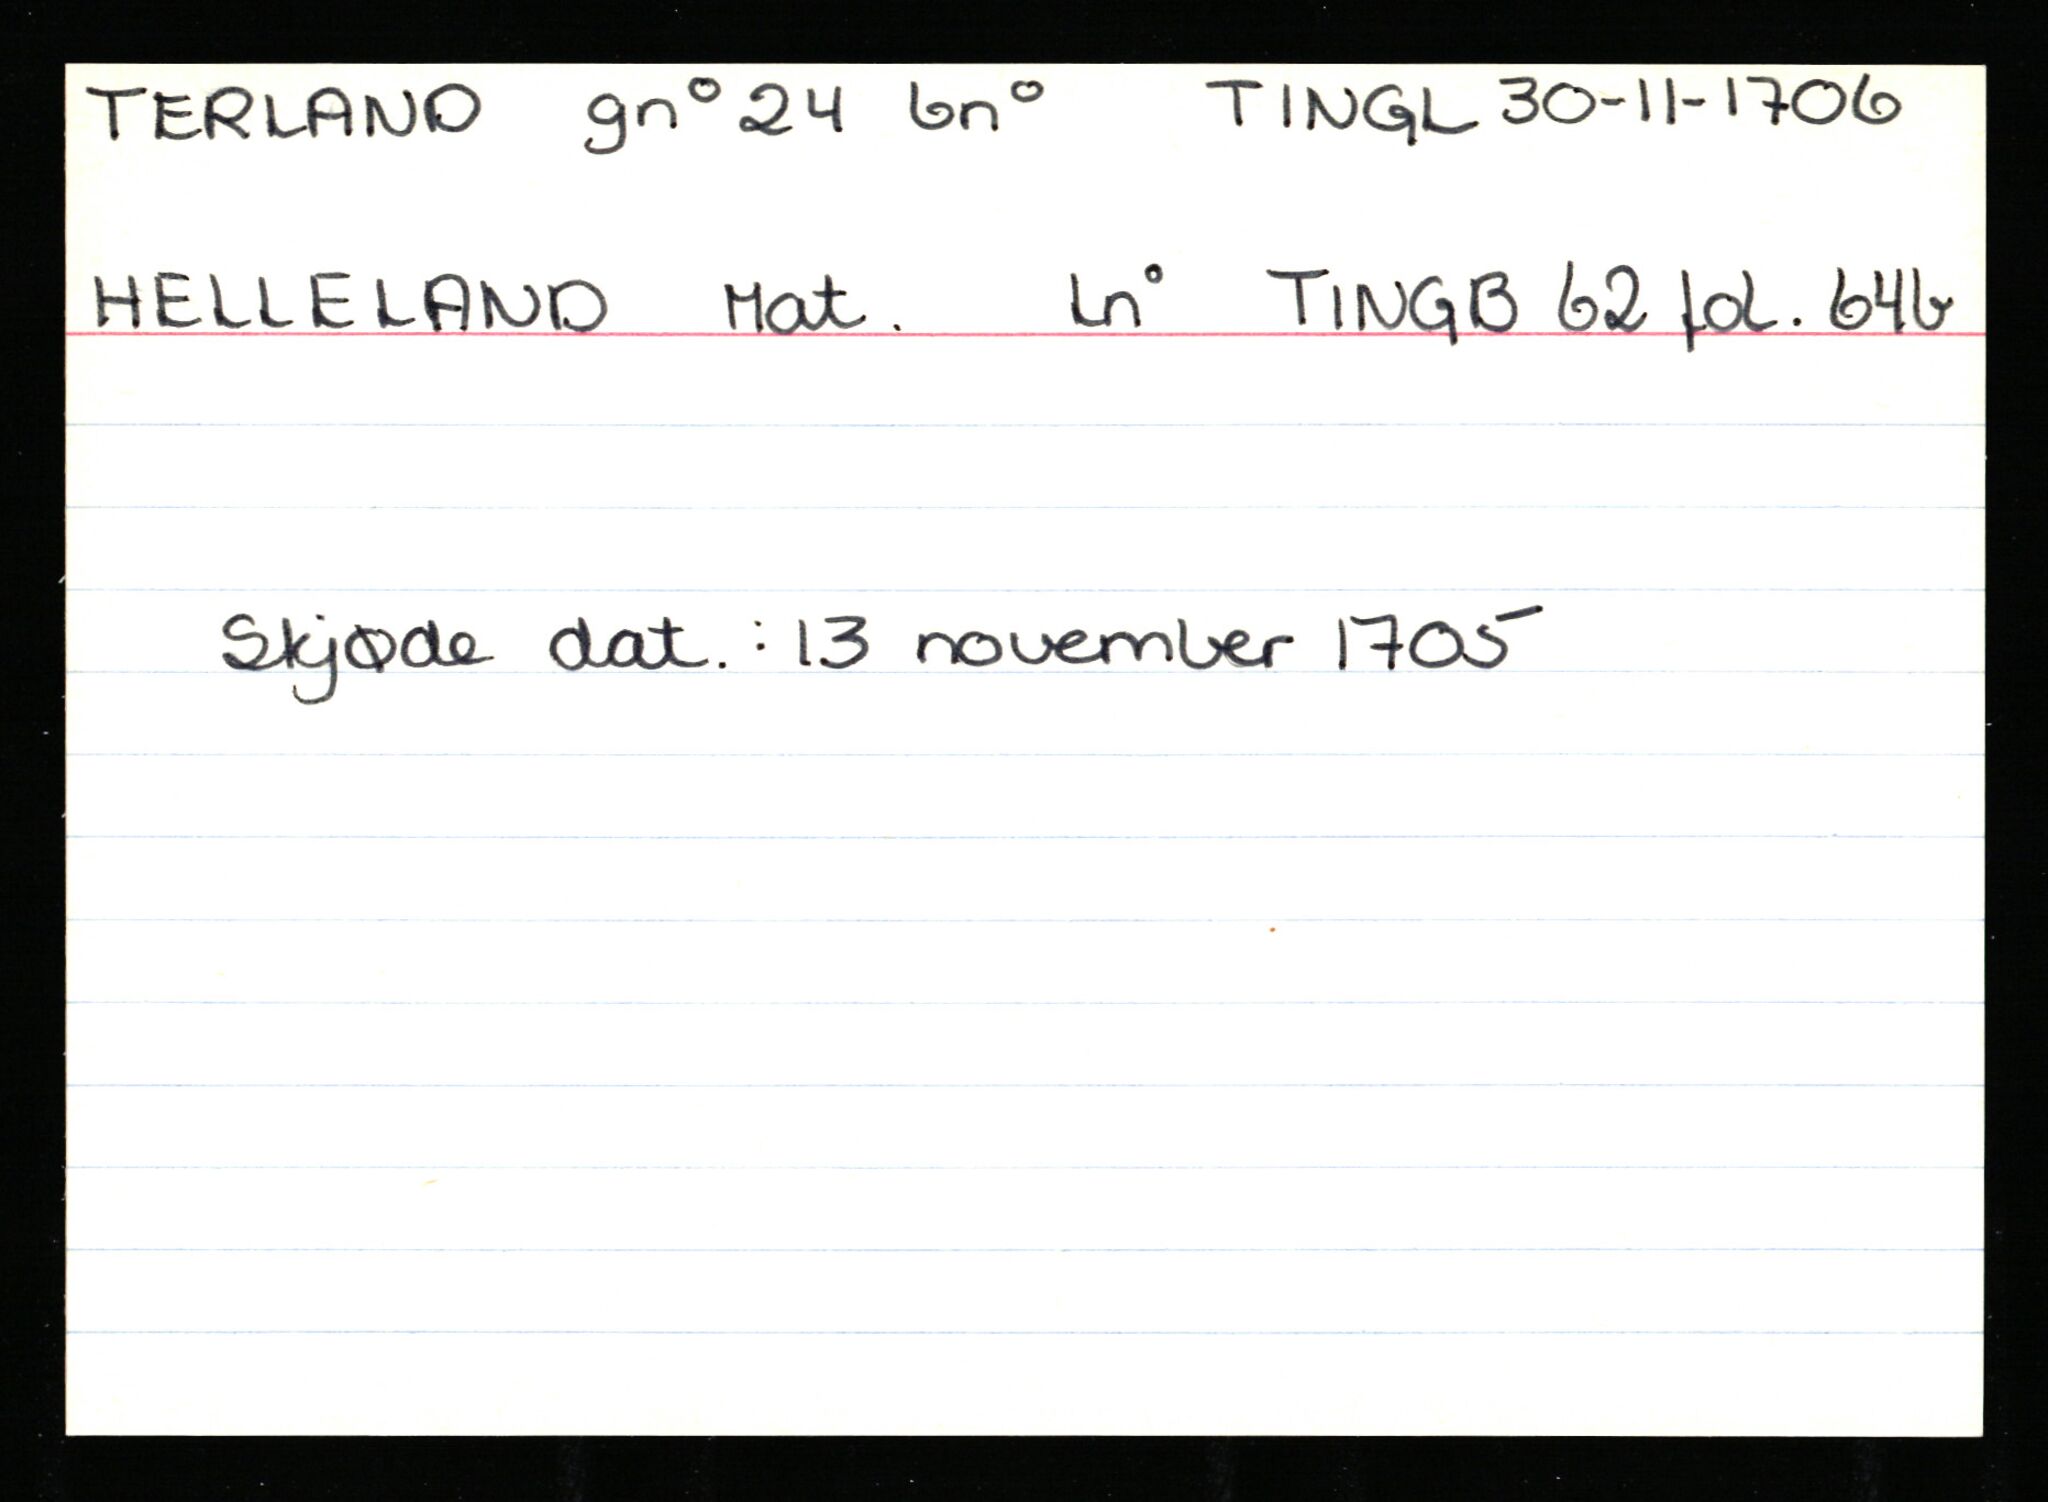 TERLAND gn° 24 bn° TINGL 30-11-1706
HELLELAND Mat. Ln° TINGB 62 fol. 64b
Skjøde dat. : 13 november 1705